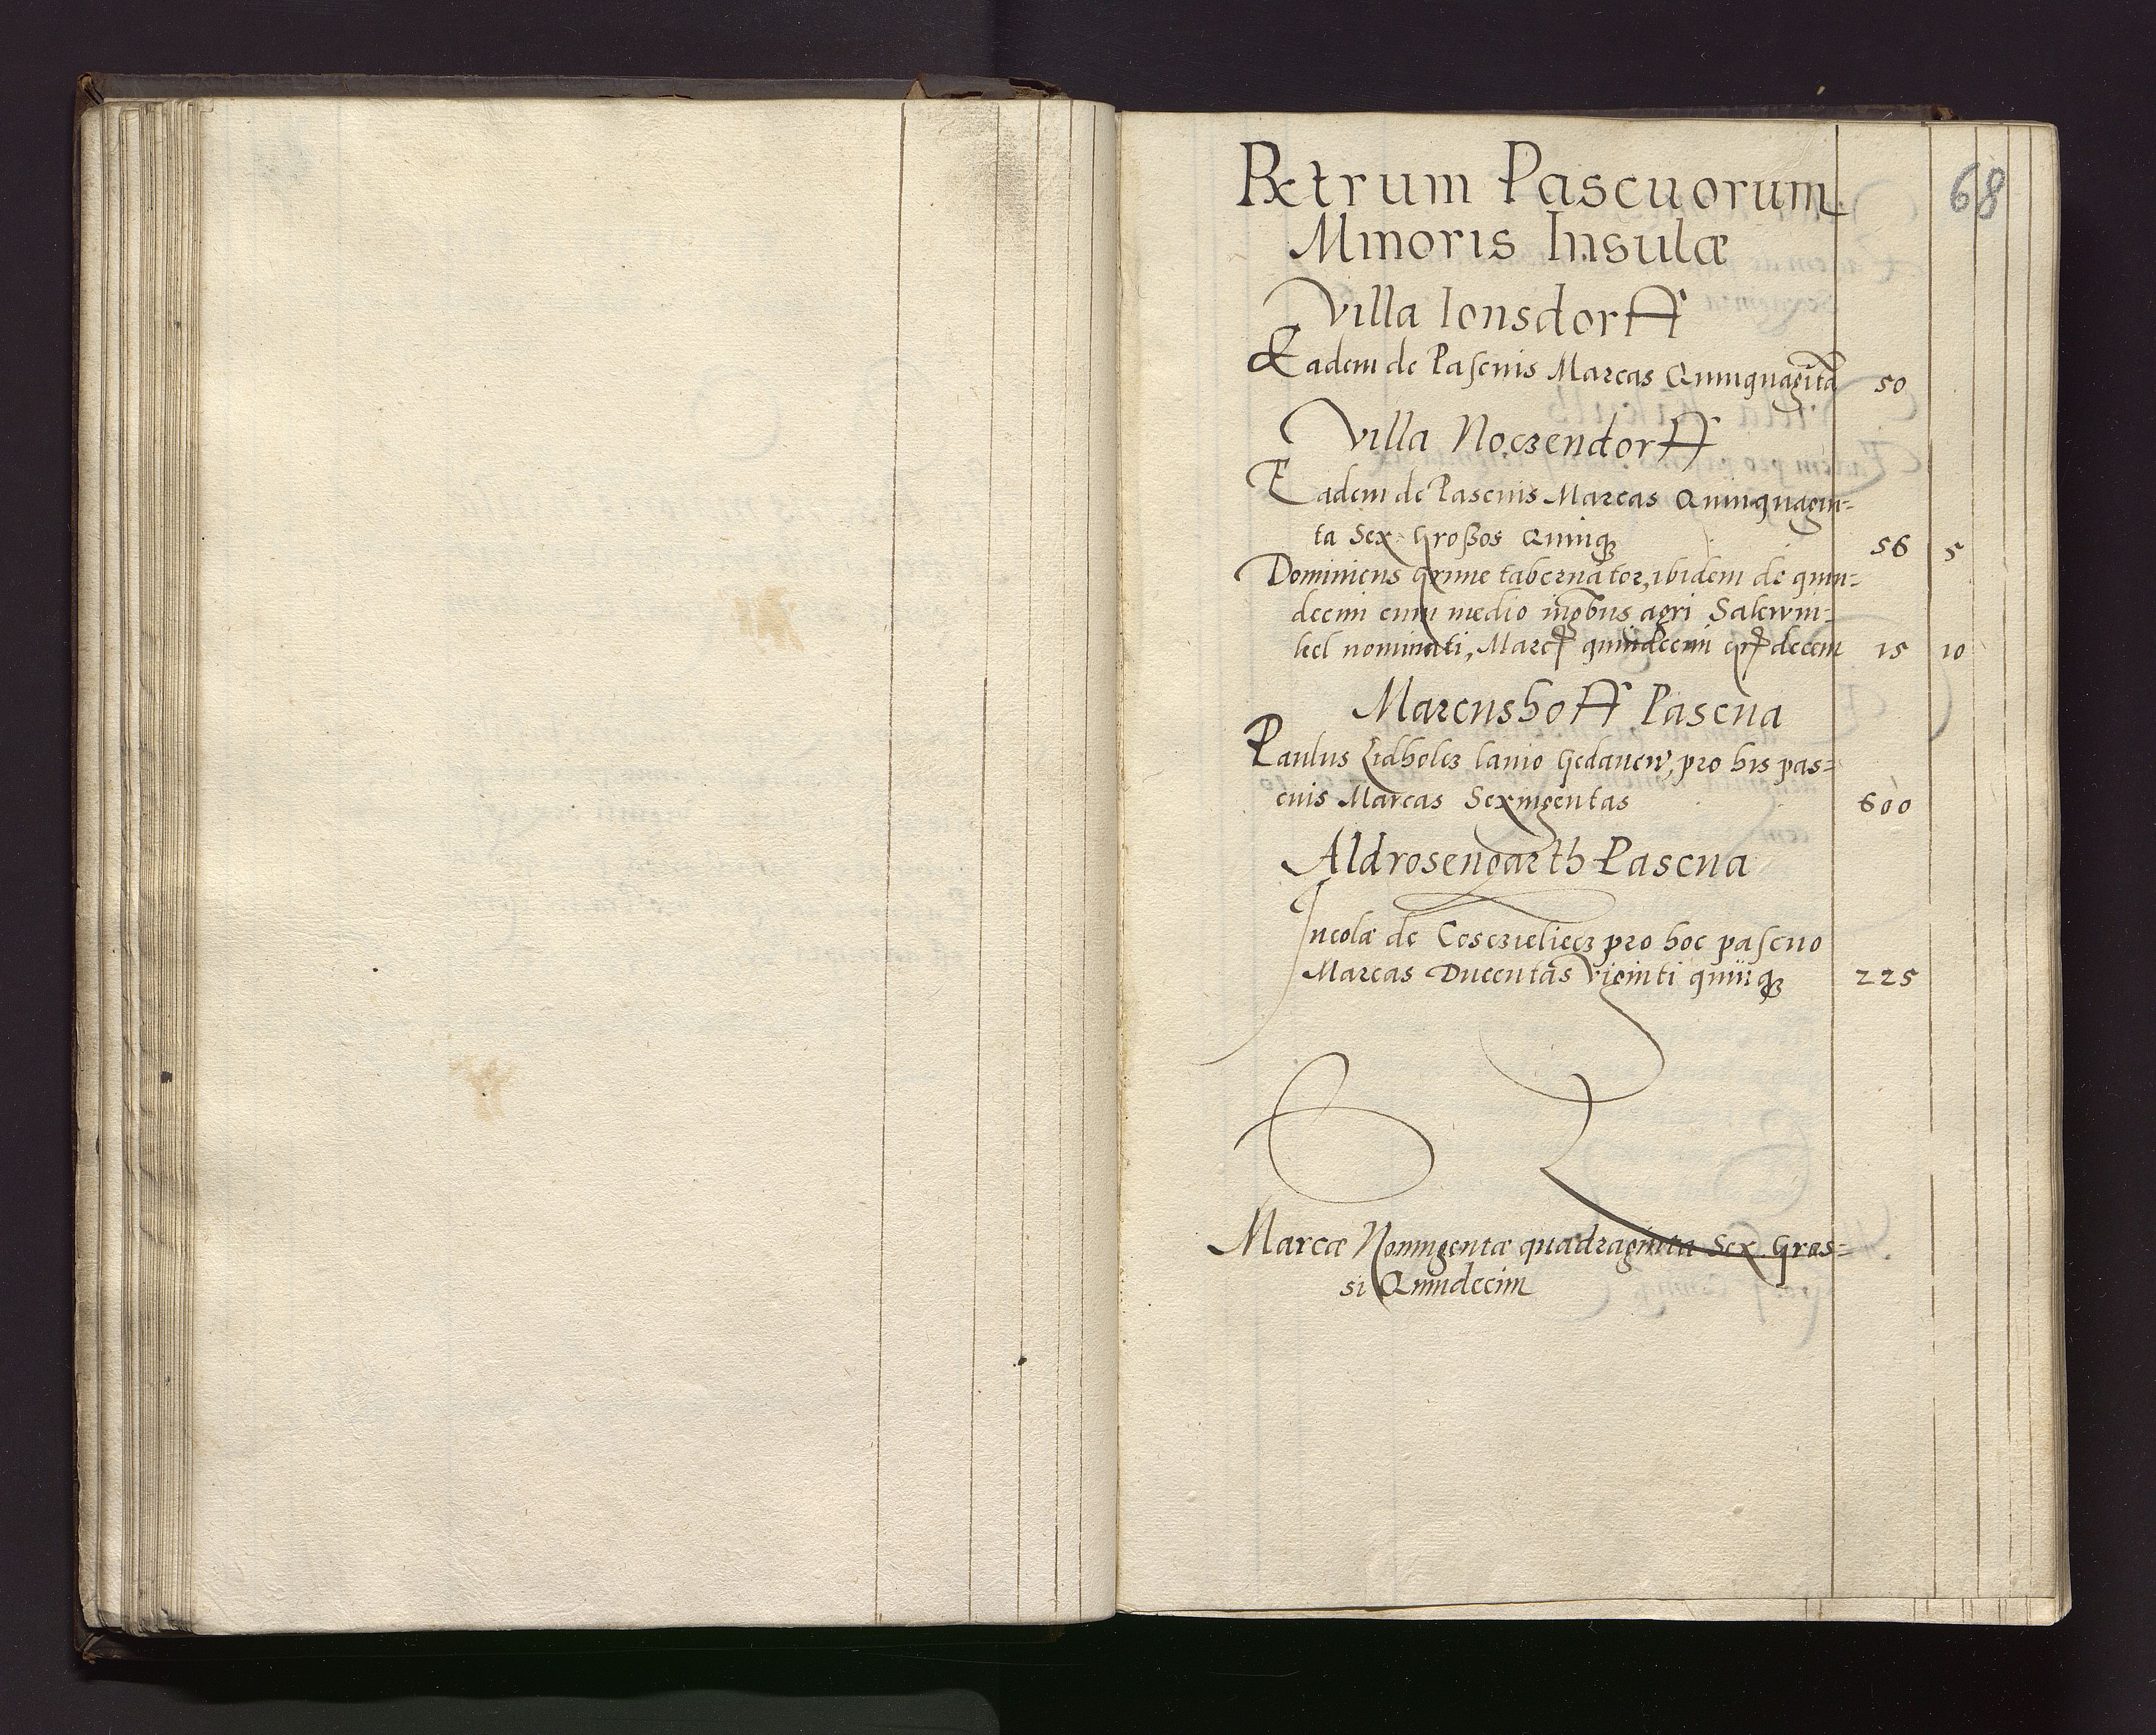 68
Rętrum Pascuorum
Minoris Insulæ
Villa Ionsdorff
Eadem de Pascuis Marcas Quinquagĩta 50
Villa Noczendorff
Eadem de Pascuis Marcas Quinquagin=
ta Sex Großos Quinqꝫ 56 5
Dominicus Grune tabernator, ibidem de quin=
decim cum medio iũgeribus agri Salewin=
kel nominati, Marcꝭ quindecim grꝭ decem 15 10
Marcushoff Pascua
Paulus lanio Gedanen, pro his pas=
cuis Marcas Sexingentas 600
Aldrosengarth Pascua
Incolæ de Cosczieliecz pro hoc pascuo
Marcas Ducentas Viginti quinqꝫ 225
Marcæ Noningentæ quadraginta Sex Gros=
si Quindecim